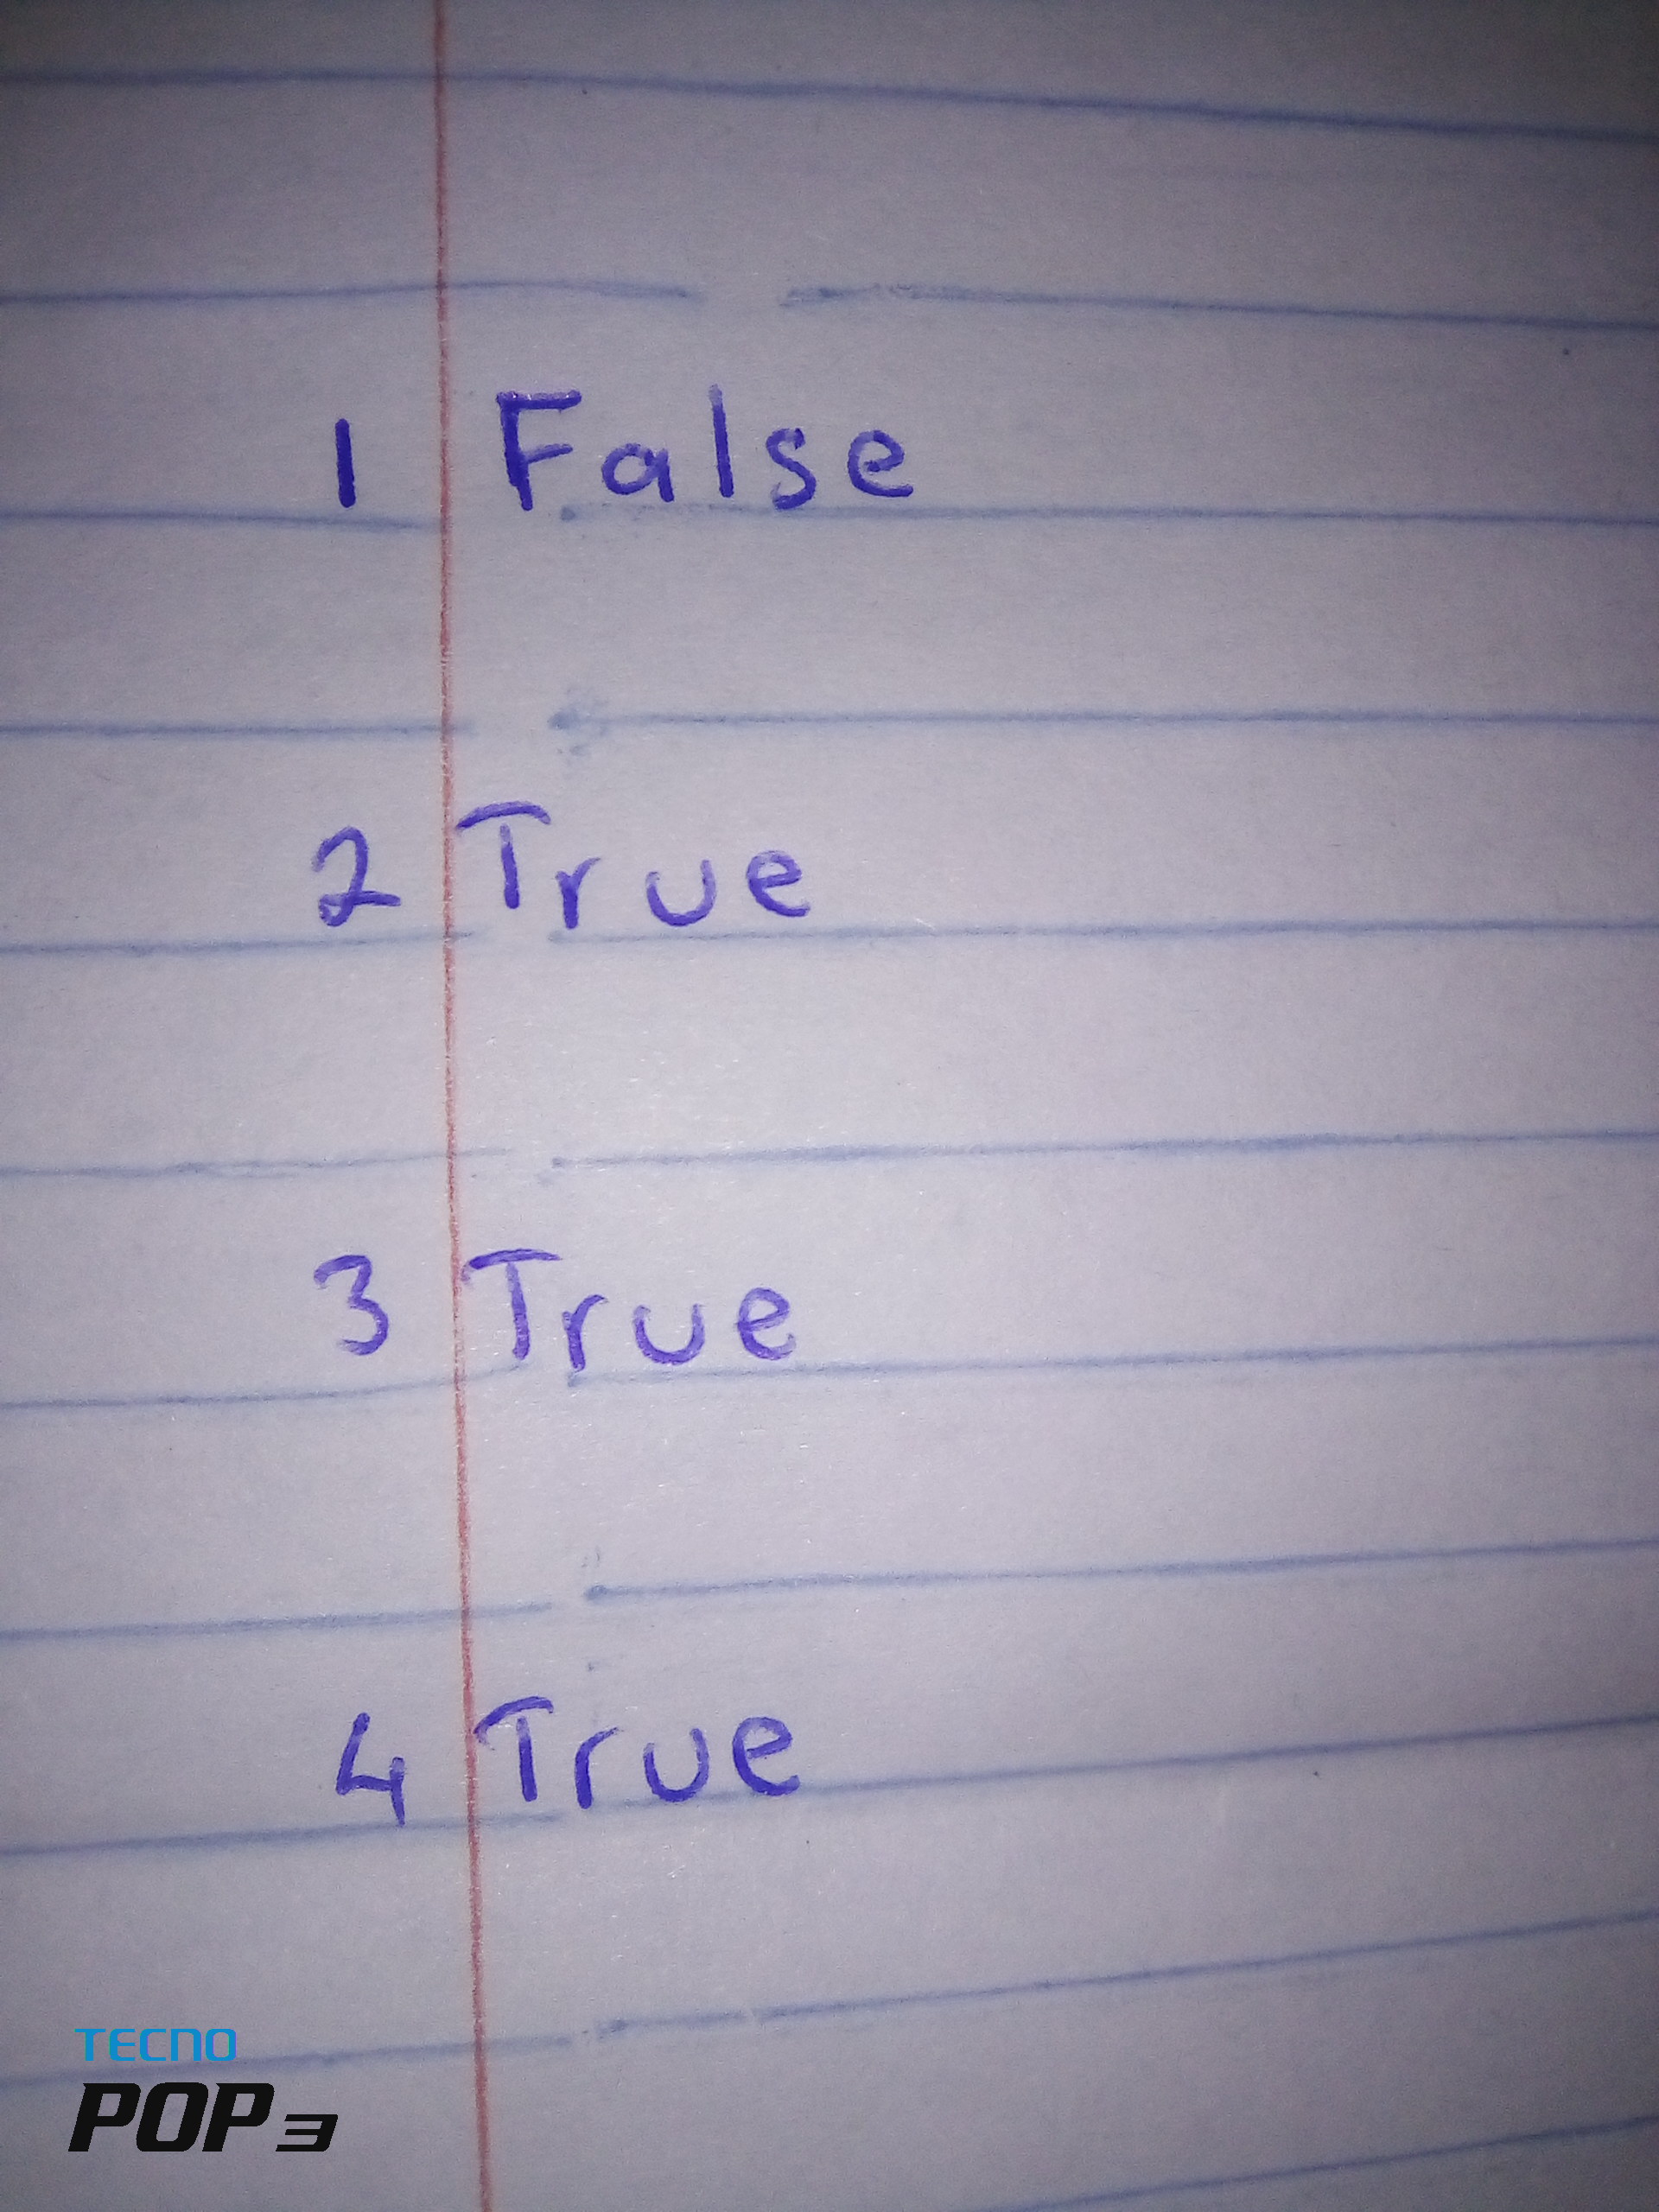 1 False
2 True
3 True
4 True
TECNO
POP 3